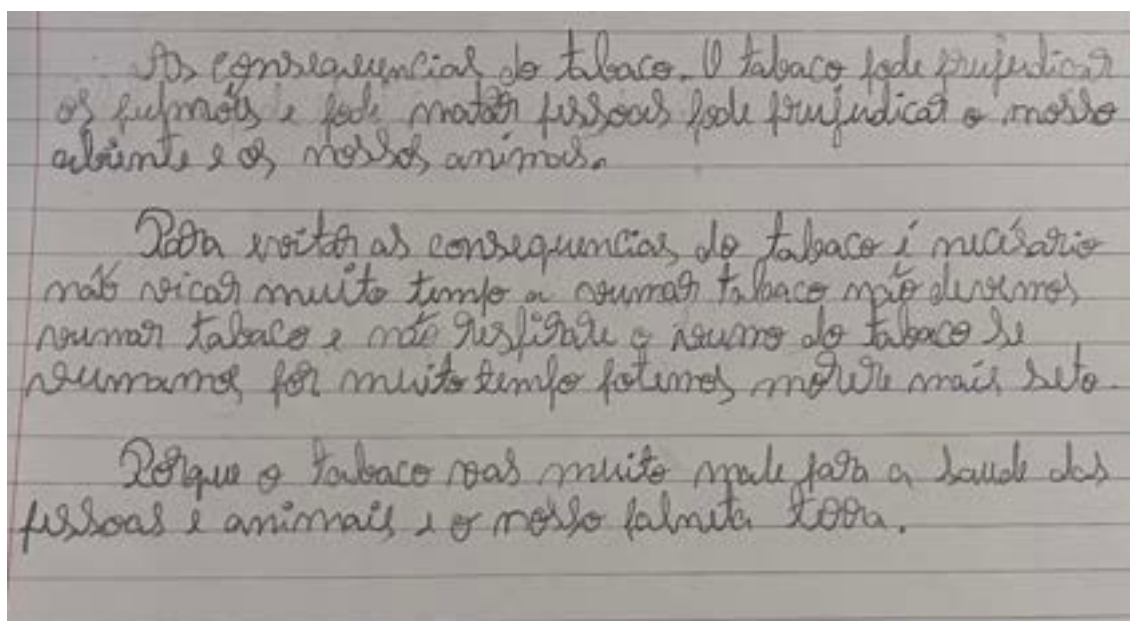 As consequencias do tabaco. O tabaco pode prujudicar
os pulmõis e pode matar pessoas pode prujudicar o nosso
abiente e os nossos animais.
Para evitar as consequencias do tabaco é necésario
não vicar muito tempo a vumar tabaco não devemos
vumar tabaco e não respirare o vumo do tabaco se
vumamos por muito tempo potemos morere mais seto.
Porque o tabaco vas muito male para a saude das
pessoas e animais e o nosso palneta terra.